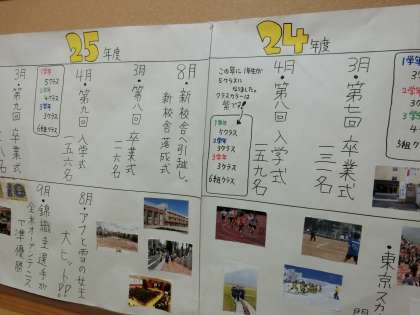 24年度
1学年
3クラス
2学年
3クラス
3学年
3クラス
6組クラス
3月・第七回 卒業式
一三一名
4月・第八回 入学式
一五九名
この年に1学年が
5クラスに
なりました。
クラスカラーは
紫です!
1学年
5クラス
2学年
3クラス
3学年
3クラス
6組クラス
・東京スカ
25年度
8月・新校舎へ引越し。
新校舎落成式
3月・第八回 卒業式
一一六名
4月・第九回 入学式
一五六名
1学年
5クラス
2学年
4クラス
3学年
3クラス
6組クラス
3月・第九回 卒業式
8月・アナと雪の女王
大ヒット!!
9月・錦織圭選手が
全米オープンテニス
で準優勝